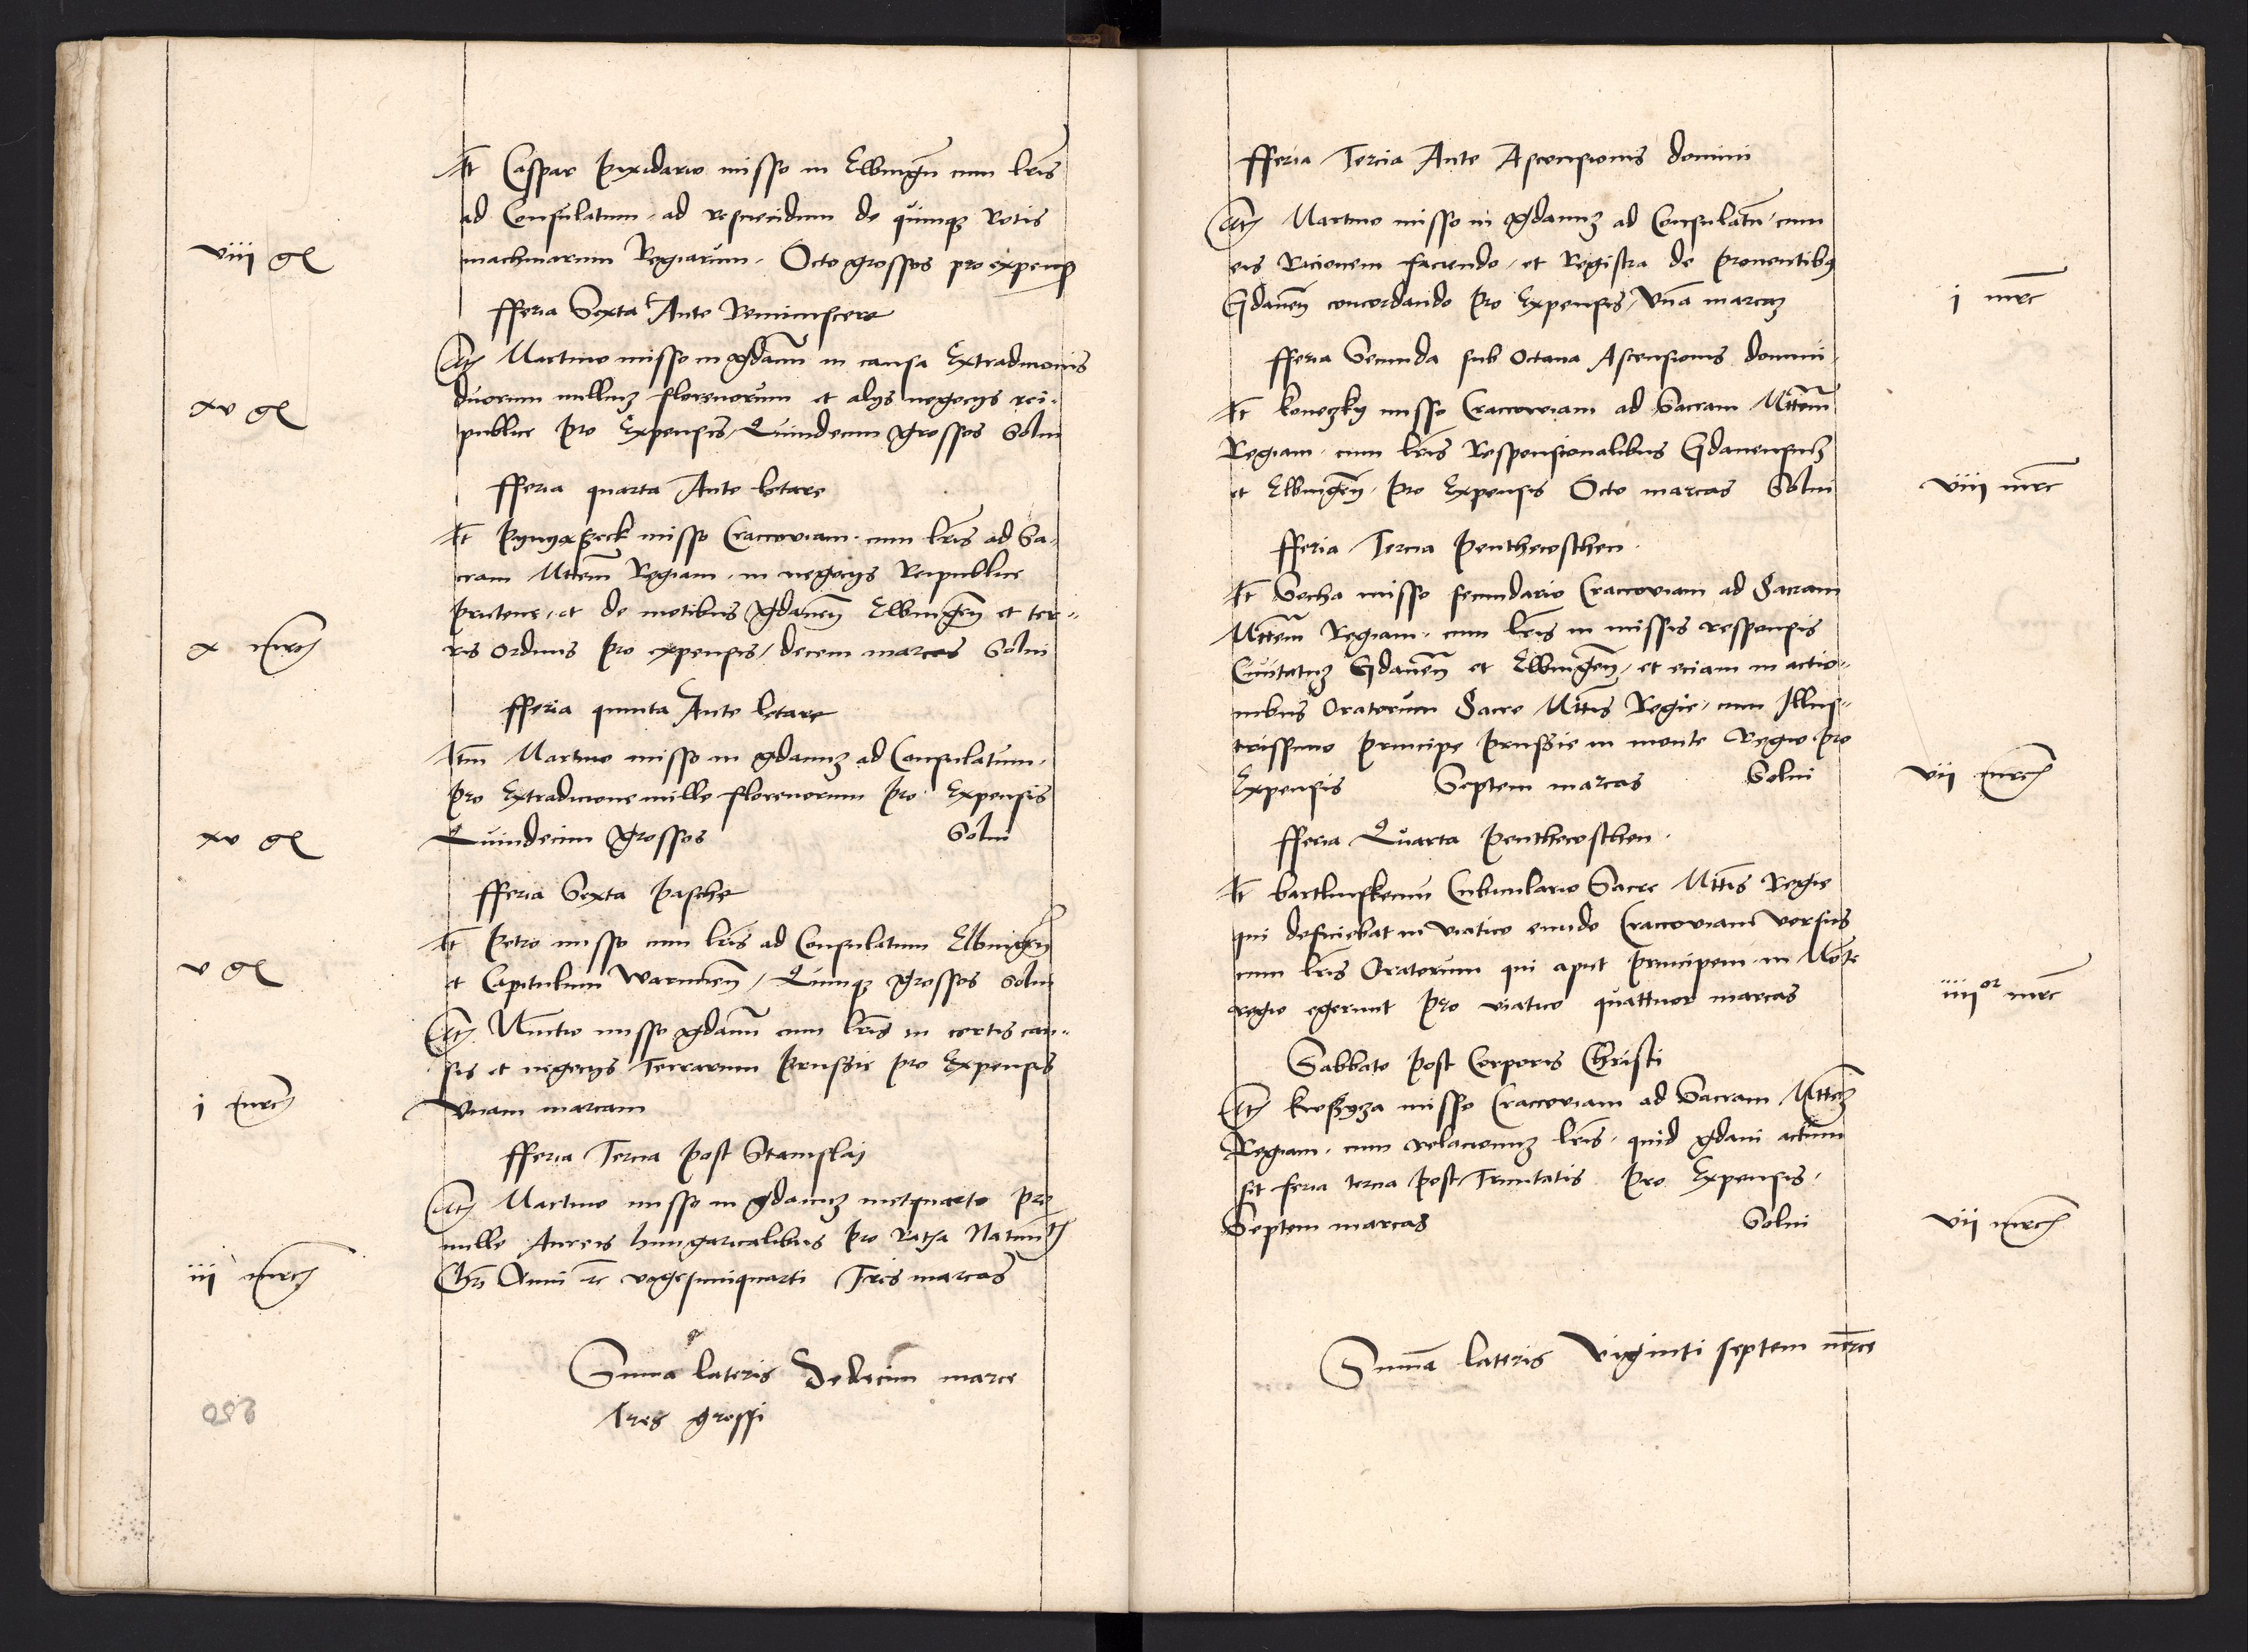 It Caspar Pixidario misso in Elbingn cum lris
ad Consulatum, ad resciendum de quinqz Rotis
viii gr machinarum Regiarum. Octo grossos pro expens
fferia Sexta Ante Reminiscere
Itē Martino misso in gdanū in causa Extradicionis
duorum milliuz florenorum et alijs negocijs rei-
xv gr publice Pro Expensis, Quindecim grossos Solui
fferia quarta Ante letare
It misso Craccoviam cum lris ad Sa-
cram Mttem Regiam in negocijs Reipublice
Prutene, et de motibus gdanen Elbingen et ter-
x mrc ris Ordinis Pro expensis, decem marcas Solui
fferia quinta Ante letare
Itm Martino misso in gdanuz ad Consulatum.
Pro Extradicione mille florenorum Pro Expensis
xv gr Quindecim grossos Solui
fferia Sexta Pasche
It Petro misso cum lris ad Consulatum Elbingen
v gr et Capitulum Warmien, Quinqz grossos Solui
Itē Nunctio misso gdanū cum lris in certis cau-
sis et negocijs Terrarum Prussie pro Expensis
i mrc Vnam marcam
fferia Tercia Post Stanislaj
Itē Martino misso in gdanuz metquarto Pro
mille Aureis hungaricalibus Pro Ratha Natiuit
iii mrc Chri Anni rc vigesimiquarti Tres marcas
Suma lateris Sedecim marce
Tres grossi
250
fferia Tercia Ante Ascensionis domini
Itē Martino misso in gdanuz ad Consulatū, cum
eis Racionem faciendo, et Registra de Prouentibq
i mrc Gdanen concordando Pro Expensis, Vnā marcaz
fferia Secunda sub Octaua Ascensionis domini.
It koneczky misso Craccoviam ad Sacram Mttem
Regiam, cum lris Responsionalibus Gdanensiuz
viii mrc et Elbingen, Pro Expensis Octo marcas Solui
fferia Tercia Penthecosthen.
It Socha misso secundario Craccoviam ad Sacram
Mttem Regiam, cum lris in missis responsis
Ciuitatuz Gdanen et Elbingen, et eciam in actio-
nibus Oratorum Sacre Mttis Regie, cum Illus-
trissimo Principe Prussie in monte Regio Pro
vii mrc Expensis Septem marcas Solui
fferia Quarta Penthecosthen.
It Cubiculario Sacre Mttis Regie
qui deficiebat in viatico eundo Craccoviam versus
cum lris Oratorum qui aput Principem in Mōte
iiiior mrc regio egerunt Pro viatico quattuor marcas
Sabbato Post Corporis Christi
Itē misso Craccoviam ad Sacram Mttez
Regiam, cum relacionuz lris, quid gdani actum
sit feria tercia Post Trinitatis Pro Expensis,
vii mrc Septem marcas Solui
Summa lateris Viginti septem mrce